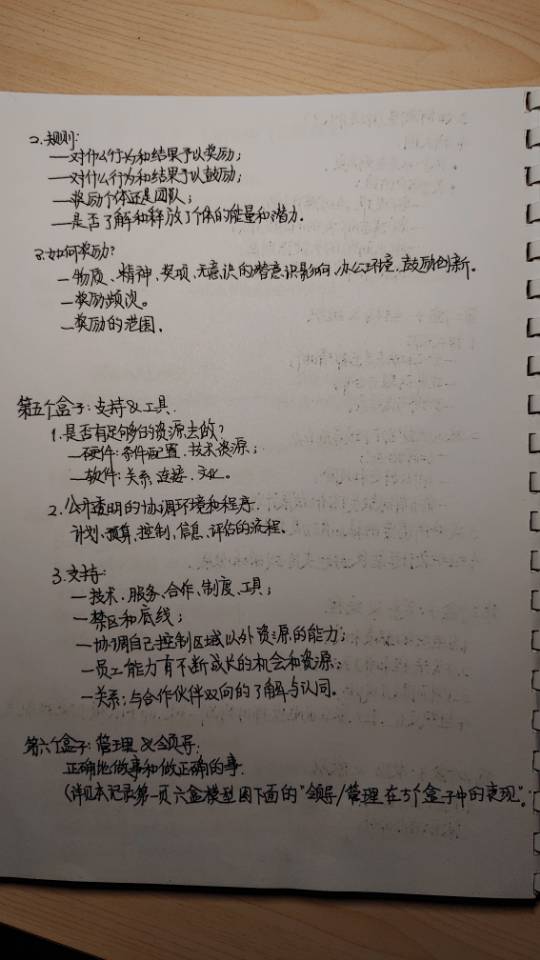 2.规则:
—对什么行为和结果予以奖励;
—对什么行为和结果予以鼓励;
—奖励个体还是团队;
—是否了解和释放了个体的能量和潜力.
3.如何奖励?
—物质、精神、奖项、无意识的潜意识影响、办公环境、鼓励创新。
—奖励频次。
—奖励的范围.
第五个盒子:支持&工具.
1.是否有足够的资源去做?
—硬件:条件配置.技术资源;
—软件:关系.连接.文化。
2.公开透明的协调环境和程序.
计划、预算、控制、信息、评估的流程.
3.支持:
—技术、服务、合作、制度、工具;
—禁区和底线;
—协调自己控制区域以外资源的能力;
—员工能力有不断成长的机会和资源;
—关系:与合作伙伴双向的了解与认同。
第六个盒子:管理&领导:
正确地做事和做正确的事.
(详见本记录第一页六盒模型图下面的“领导/管理在5个盒子中的表现”.